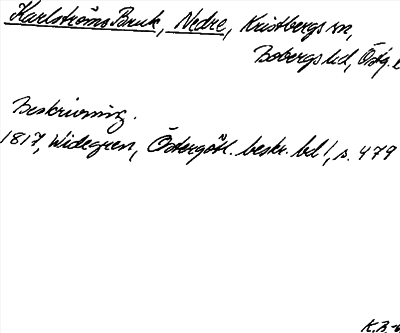 Karlströms Bruk, Nedre, Kristbergs sn,
Bobergs hd, Östg.
Beskrivning.
1817, Widegren, Östergötl. beskr. bd 1, s. 479
K.B.